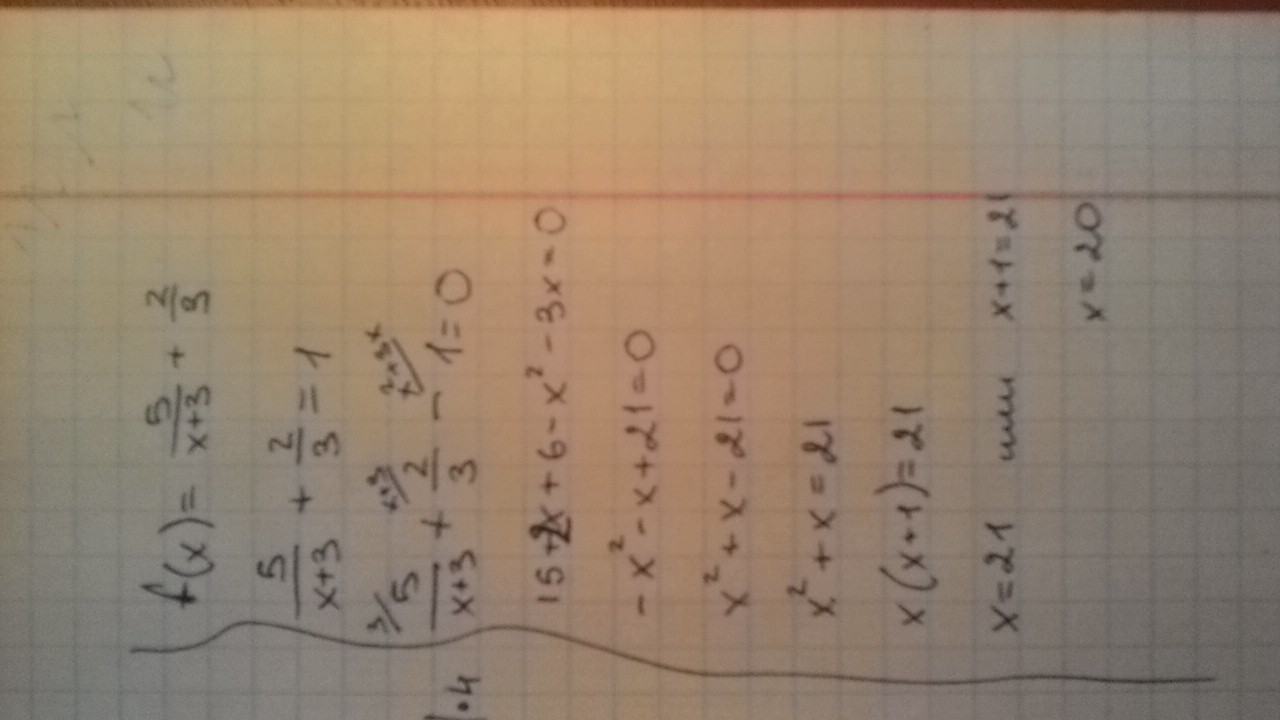 f(x) = 5/(x+3) + 2/3
5/(x+3) + 2/3 = 1
3/ 5/(x+3) + x+3/ 2/3 - 1 = 0
15+2x+6-x²-3x=0
-x²-x+21=0
x²+x-21=0
x²+x=21
x(x+1)=21
x=21 или x+1=21
x=20
.4